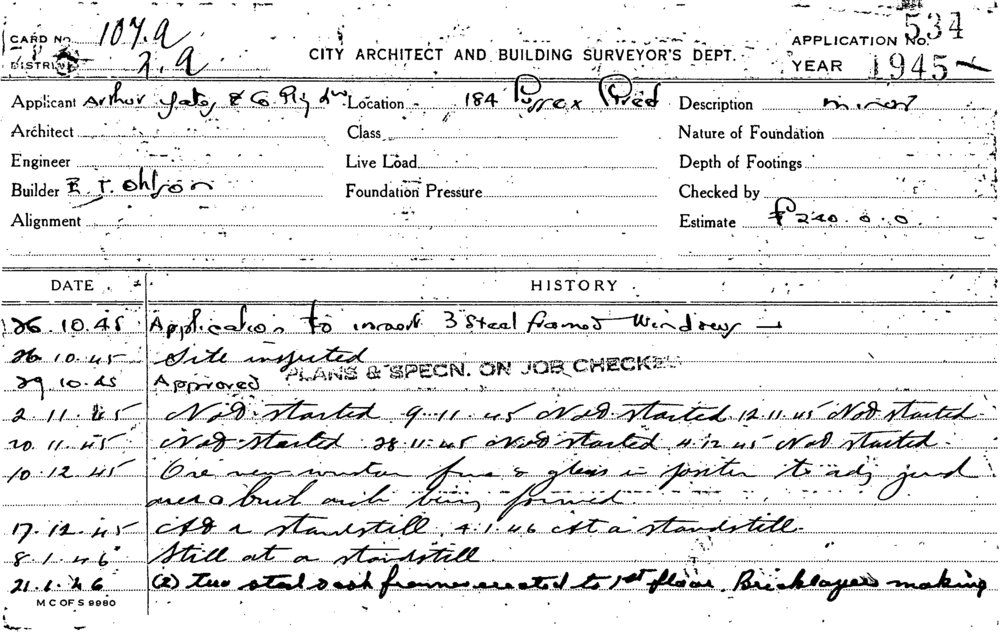 CARD No. 107.a
DISTRICT 2.a
CITY ARCHITECT AND BUILDING SURVEYOR'S DEPT.
APPLICATION No. 534
YEAR 1945
Applicant Arthur Yates & Co Pty Ltd Location 184 Sussex Street Description minor
Architect Class Nature of Foundation
Engineer Live Load Depth of Footings
Builder E. T. Ohlson Foundation Pressure Checked by
Alignment Estimate £240.0.0
DATE HISTORY
26.10.45 Application to insert 3 Steel framed Windows
26.10.45 Site inspected
29.10.45 Approved PLANS & SPECN. ON JOB CHECKED
2.11.45 Not started 9.11.45 Not started 12.11.45 Not started
20.11.45 Not started 28.11.45 Not started 4.12.45 Not started.
10.12.45 One new window frame & glass in position to adj
area & brick arch being formed
17.12.45 At a standstill 4.1.46 At a standstill.
8.1.46 Still at a standstill
21.1.46 (2) two steel sash frames erected to 1st floor. Bricklayers making
M C OF S 9980